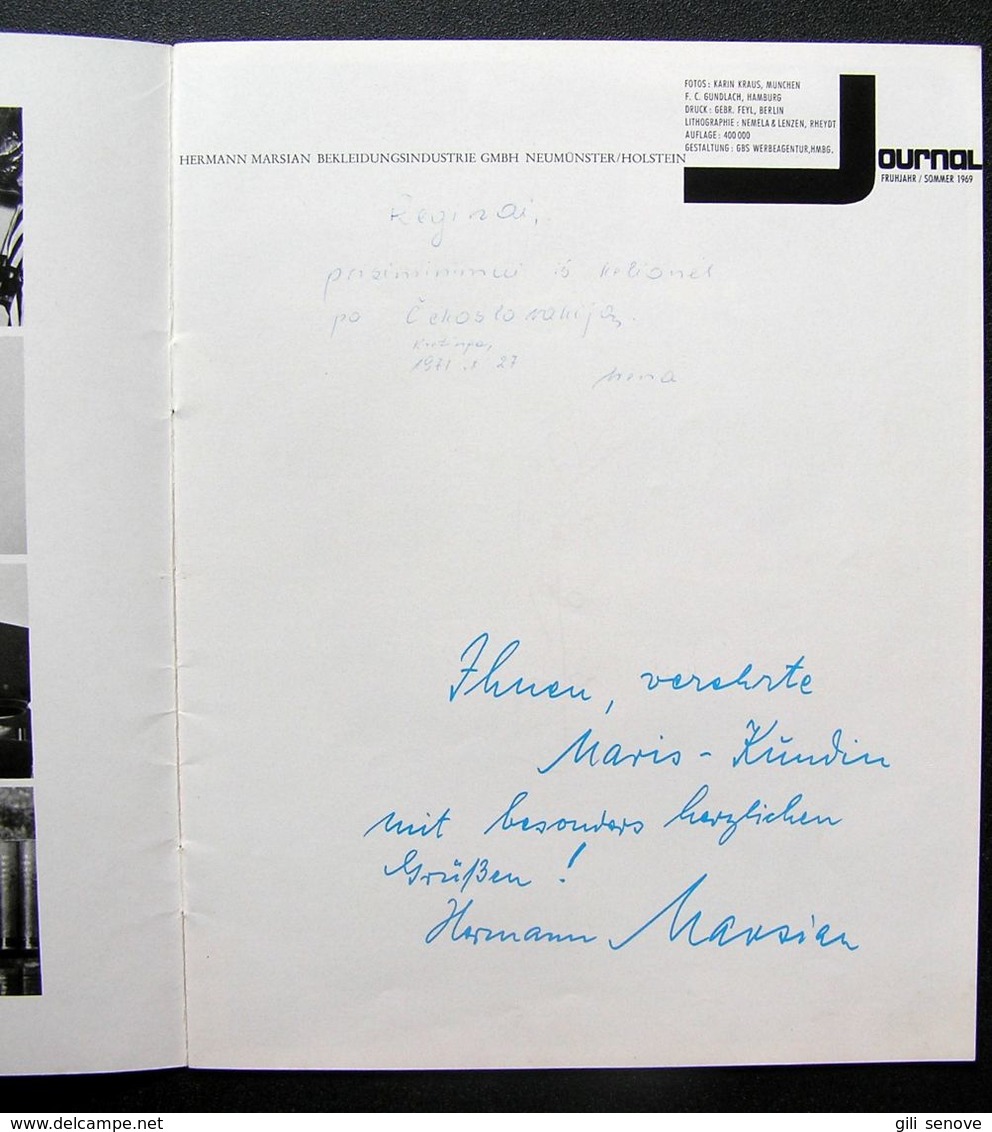 FOTOS: KARIN KRAUS, MÜNCHEN
F. C. GUNDLACH, HAMBURG
DRUCK: GEBR. FEYL, BERLIN
LITHOGRAPHIE: NEMELA & LENZEN, RHEYDT
AUFLAGE: 400 000
GESTALTUNG: GBS WERBEAGENTUR, HMBG.
HERMANN MARSIAN BEKLEIDUNGSINDUSTRIE GMBH NEUMÜNSTER/HOLSTEIN
Journal
FRÜHJAHR / SOMMER 1969
Reginai,
prisiminimui iš kelionės
po Čekoslovakiją.
1971
Ihnen, verehrte
Maris-Kundin
mit besonders herzlichen
Grüßen!
Hermann Marsian
gili senove